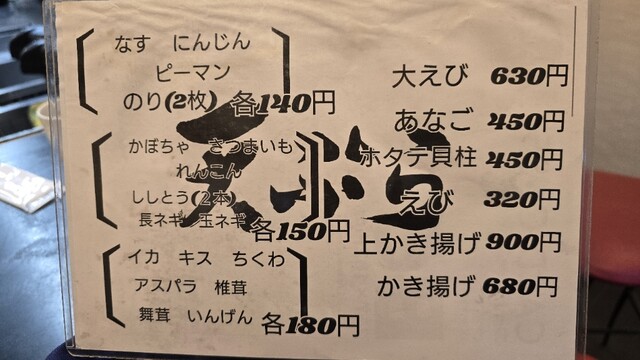 天ぷら
なす にんじん
ピーマン
のり(2枚) 各140円
かぼちゃ さつまいも
れんこん
ししとう(2本)
長ネギ 玉ネギ 各150円
イカ キス ちくわ
アスパラ 椎茸
舞茸 いんげん 各180円
大えび 630円
あなご 450円
ホタテ貝柱 450円
えび 320円
上かき揚げ 900円
かき揚げ 680円